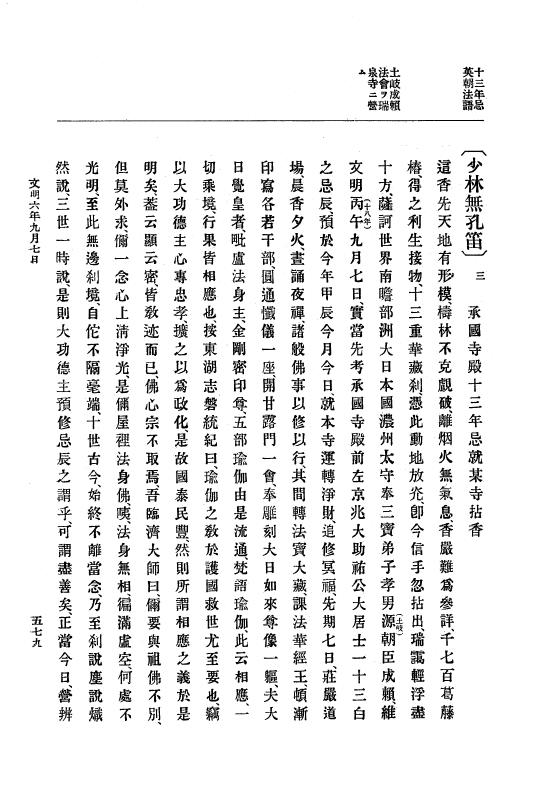 十三年忌
英朝法語
土岐成頼
法會ヲ瑞
泉寺ニ營
ム
〔少林無孔笛〕 三 承國寺殿十三年忌就某寺拈香
這香先天地有形模、檮林不克覷破、離烟火無氣息、香嚴難爲參詳、千七百葛藤
樁、得之利生接物、十三重華藏刹、憑此動地放光、卽今信手忽拈出、瑞靄輕浮盡
十方、薩訶世界南瞻部洲大日本國濃州太守奉三寶弟子孝男源(土岐)朝臣成賴、維
文明丙午(十八年)九月七日、實當先考承國寺殿前左京兆大助祐公大居士一十三白
之忌辰、預於今年甲辰今月今日、就本寺運轉淨財、追修冥福、先期七日、莊嚴道
場、晨香夕火、晝誦夜禪、諸般佛事以修以行、其間轉法寶大藏、課法華經王、頓漸
印寫各若干部、圓通懺儀一座、開甘露門一會、奉雕刻大日如來尊像一軀、夫大
日覺皇者、毗盧法身主、金剛密印尊、五部瑜伽由是流通、梵語瑜伽、此云相應、一
切乘境、行果皆相應也、按東湖志磐統紀曰、瑜伽之敎於護國救世尤至要也、竊
以大功德主心專忠孝、擴之以爲政化、是故國泰民豐、然則所謂相應之義於是
明矣、蓋云顯云密、皆敎迹而已、佛心宗不取焉、吾臨濟大師曰、儞要與祖佛不別、
但莫外求、儞一念心上淸淨光、是儞屋裡法身佛、咦、法身無相、徧滿虛空、何處不
光明、至此無邊刹境、自佗不隔毫端、十世古今、始終不離當念、乃至刹說塵說熾
然說、三世一時說、是則大功德主預修忌辰之謂乎、可謂盡善矣、正當今日、營辨
文明六年九月七日
五七九